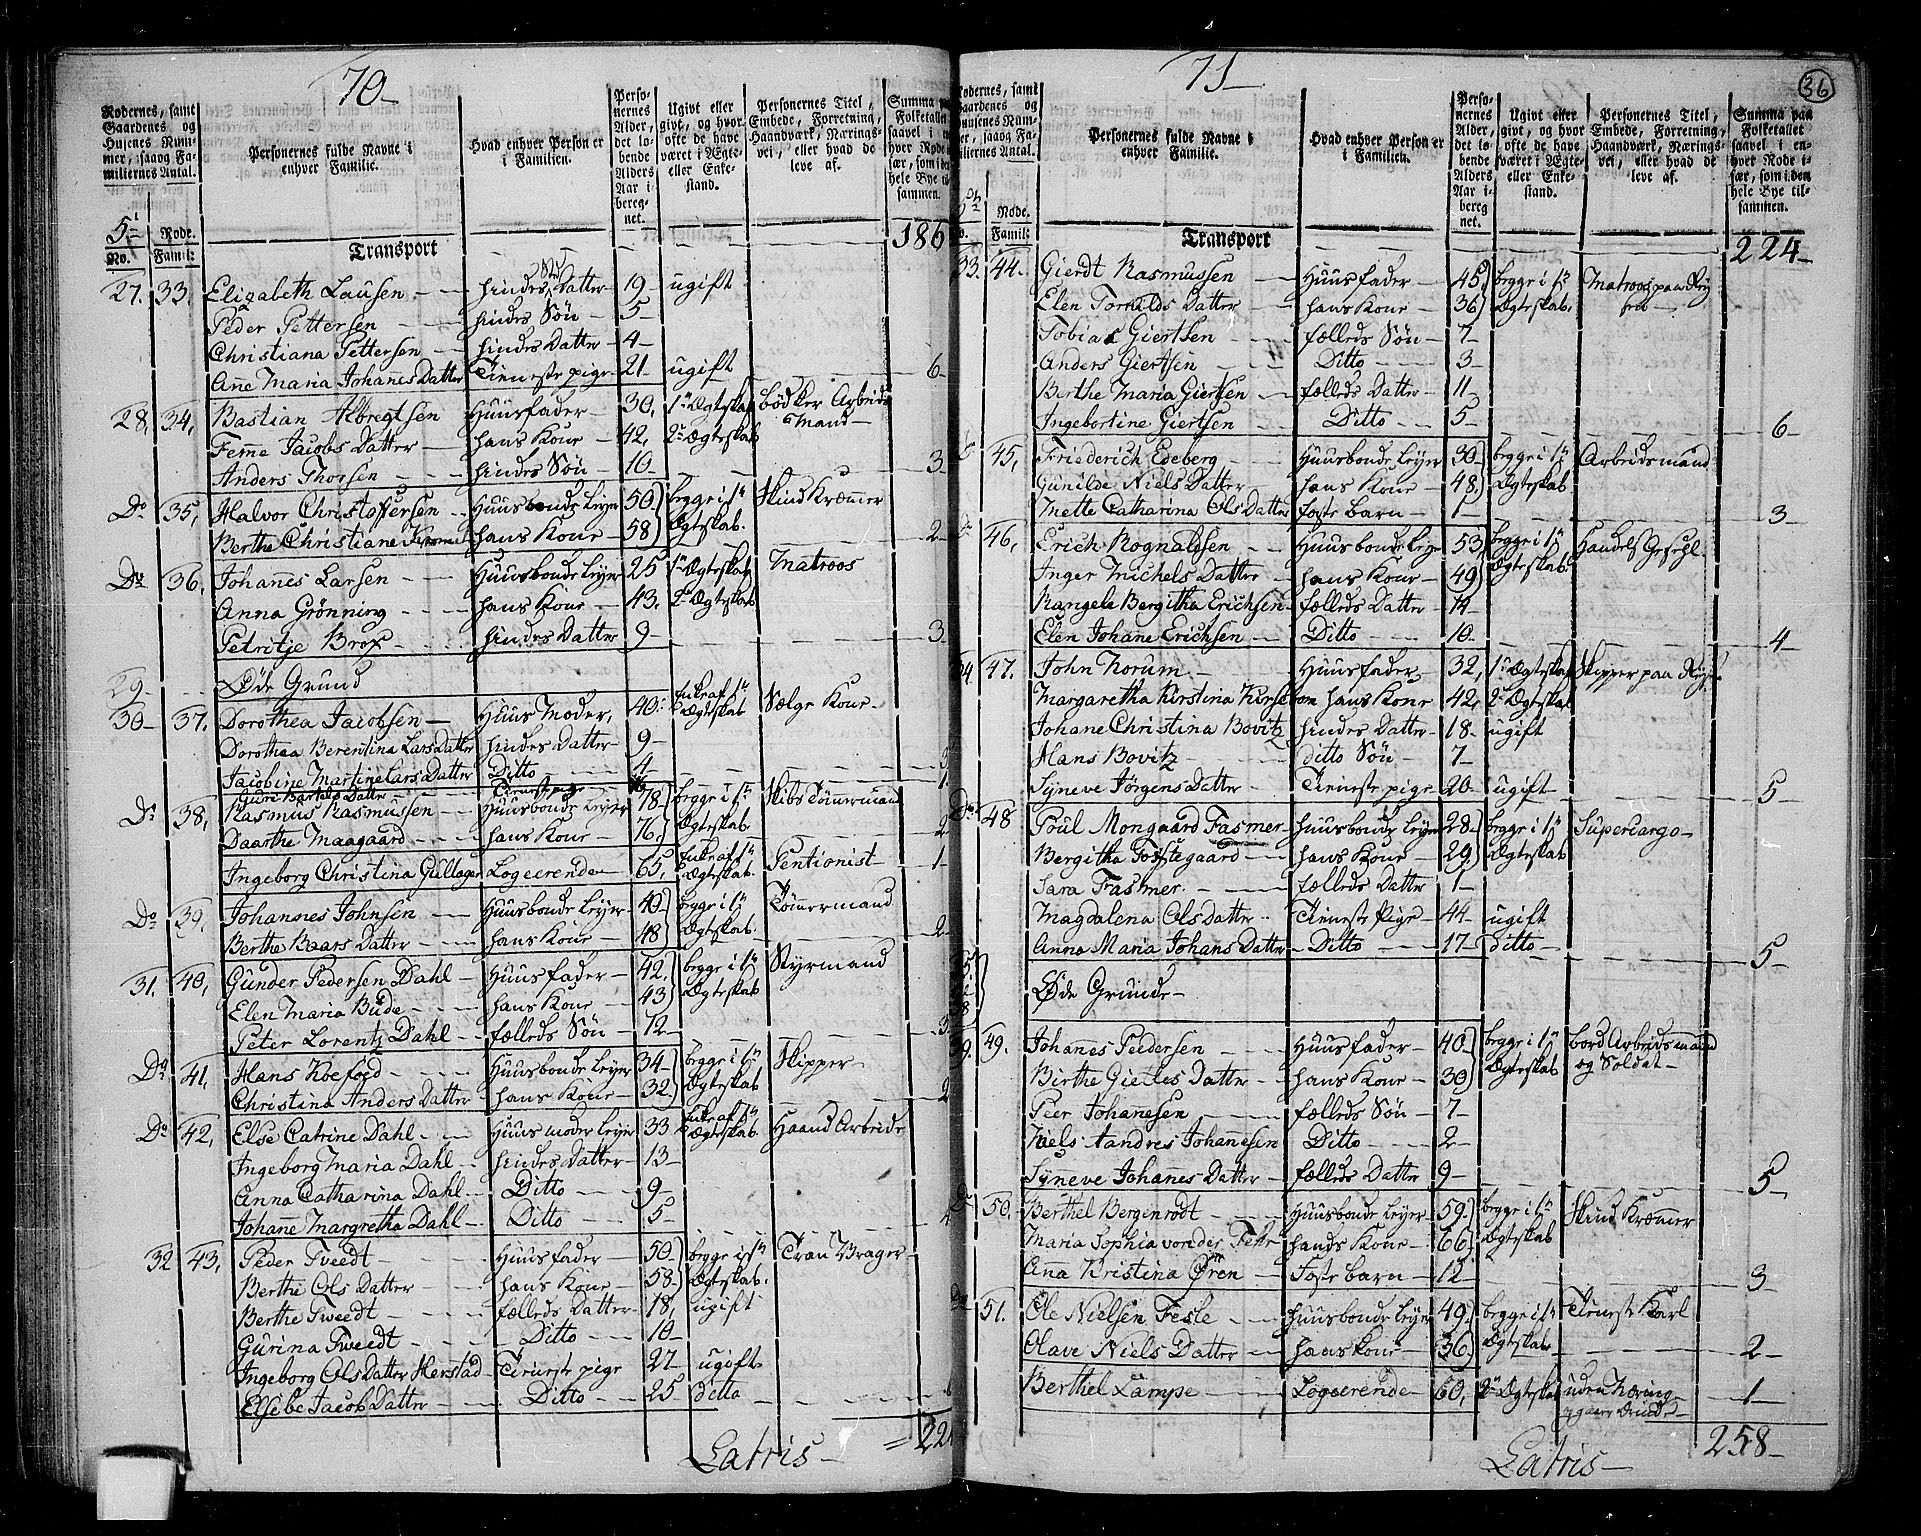 70
Rodernes, samt Gaardenes og Husenes Nummer, saaog Familiernes Antal.
Personernes fulde Navne i enhver Familie.
Hvad enhver Person er i Familien.
Personernes Alder, det løbende Alders Aar iberegnet.
Ugivt eller givt, og hvor ofte de have været i Ægte- eller Enkestand.
Personernes Titel, Embede, Forretning, Haandværk, Næringsvei, eller hvad de leve af.
Summa paa Folketallet saavel i enhver Rode især, som i den hele Bye tilsammen.
5te Rode.
No. Famil:
Transport 186
27. 33. Elizabeth Lausen hindes Sted Datter 19 ugift
Peder Pettersen hindes Søn 5
Christiana Pettersen hindes Datter 4
Anne Maria Johannes Datter Tieneste pige 21 ugift 6
28. 34. Bastian Albregtsen Huusfader 30. 1te Ægteskab bødker Arbeids Mand
Femme Jacobs Datter hans Kone 42. 2te Ægteskab
Anders Thorsen hindes Søn 10 3
Do 35. Halvor Christoffersen Huusbonde Leyer 50 begge i 1te Skind Kræmer
Berthe Christiane hans Kone 58 Ægteskab. 2
Do 36. Johannes Larsen Huusbonde Leyer 25 1te Ægteskab Matroos
Anna Grønning hans Kone 43. 2te Ægteskab
Petritje Brox hindes Datter 9 3
29 Øde Grund
30 37. Dorothea Jacobsen Huus Moder, 40 Enke af 1te Ægteskab Sælge Kone
Dorothaa Berentina Lars Datter hindes Datter 9
Jacobine Martine Lars Datter Ditto 4 3
Guri Bartels Datter Tieneste pige 1
Do 38. Rasmus Rasmussen Huusbonde Leyer 78 begge i 1te Skibs Tømermand
Daarthe Maagaard hans Kone 76 Ægteskab. 2
Ingeborg Christina Gullager Logeerende 65, Enke af 1te Ægteskab. Pentionist 1
Do 39. Johannes Johnsen Huusbonde Leyer 40 begge i 1te Tømermand
Berthe Baars Datter hans Kone 48 Ægteskab. 2
31. 40. Gunder Pedersen Dahl Huusfader 42. begge i 1te Styrmand
Elen Maria Bude hans Kone 43 Ægteskab
Peter Lorentz Dahl fælleds Søn 12 3
Do 41. Hans Koefoed Huusbonde Leyer 34 begge i 1te Skipper
Christina Anders Datter hans Kone 32 Ægteskab 2
Do 42. Else Catrine Dahl Huus moder Leyer 33 Enke af 1te Ægteskab. Haand Arbeide
Ingeborg Maria Dahl hindes Datter 13
Anna Catharina Dahl Ditto 9
Johane Margretha Dahl Ditto 5 4
32 43. Peder Tveedt Huusfader 50 begge i 1te Tran Vrager
Berthe Ols Datter hans Kone 58 Ægteskab.
Berthe Tweedt fælleds Datter 18, ugift
Gurina Tweedt Ditto 10
Ingeborg Ols Datter Herstad Tieneste pige 27 ugift
Elsebe Jacobs Datter Ditto 25 ditto
Latris 224
71
36
Rodernes, samt Gaardenes og Husenes Nummer, saaog Familiernes Antal.
Personernes fulde Navne i enhver Familie.
Hvad enhver Person er i Familien.
Personernes Alder, det løbende Alders Aar iberegnet.
Ugivt eller givt, og hvor ofte de have været i Ægte- eller Enkestand.
Personernes Titel, Embede, Forretning, Haandværk, Næringsvei, eller hvad de leve af.
Summa paa Folketallet saavel i enhver Rode især, som i den hele Bye tilsammen.
5te Rode.
No. Famil:
Transport 224
33. 44. Gierdt Rasmussen Huusfader 45 begge i 1te Matroos paa Rey
Elen Tornilds Datter hans Kone 36 Ægteskab.
Tobias Giertsen fælleds Søn 7
Anders Giertsen Ditto 3
Berthe Maria Giertsen fælleds Datter 11
Ingebortine Giertsen Ditto 5 6
Do 45. Friederich Edeberg Huusbonde Leyer 30 begge i 1te Arbeidsmand
Gunilde Niels Datter hans Kone 48. Ægteskab
Mette Catharina Ols Datter foste barn 1 3
Do 46. Erich Rognaldsen Huusbonde Leyer 53 begge i 1te Handels Gesegl
Inger Michels Datter hans Kone 49 Ægteskab.
Rangele Bergitha Erichsen fælleds Datter 14
Elen Johane Erichsen Ditto 10 4
34 47. John Norum Huusfader 32, 1te Ægteskab Skipper paa Rejse
Margaretha Kirstina hans Kone 42, 2te Ægteskab
Johane Christina Bovitz hindes Datter 18 ugift
Hans Bovitz ditto Søn 7
Synneve Jörgens Datter Tieneste pige 20 ugift 5
Do 48 Poul Mongaard Fasmer Huusbonde Leyer 28 begge i 1te Supercargo
Bergitha hans Kone 29 Ægteskab
Sara Fasmer fælleds Datter 1
Magdalena Ols Datter Tieneste Pige 44 ugift
Anna Maria Johans Datter Ditto 17 Ditto 5
Øde Grunde
39. 49. Johanes Pedersen Huusfader 40 begge i 1te bord Arbeidsmand
Birthe Gietles Datter hans Kone 30 Ægteskab og Soldat
Peer Johanesen fælleds Søn 7
Niels Andres Johannesen Ditto 2
Synneve Johannes Datter fælleds Datter 9 5
Do 50. Berthel Bergenrodt Huusbonde Leyer 59 begge i 1te Skind Kræmer
Maria Sophia von der Fehr hands Kone 66 Ægteskab
Ana Kristina Ören Foste barn 12 3
Do 51. Ole Nielsen Fesle huusbonde Leyer 49 begge i 1te Tieneste Karl
Olave Niels Datter hans Kone 36 Ægteskab 2
Berthel Lampe Logeerende 60, 2te Ægteskab uden Næring 1
Latris 258